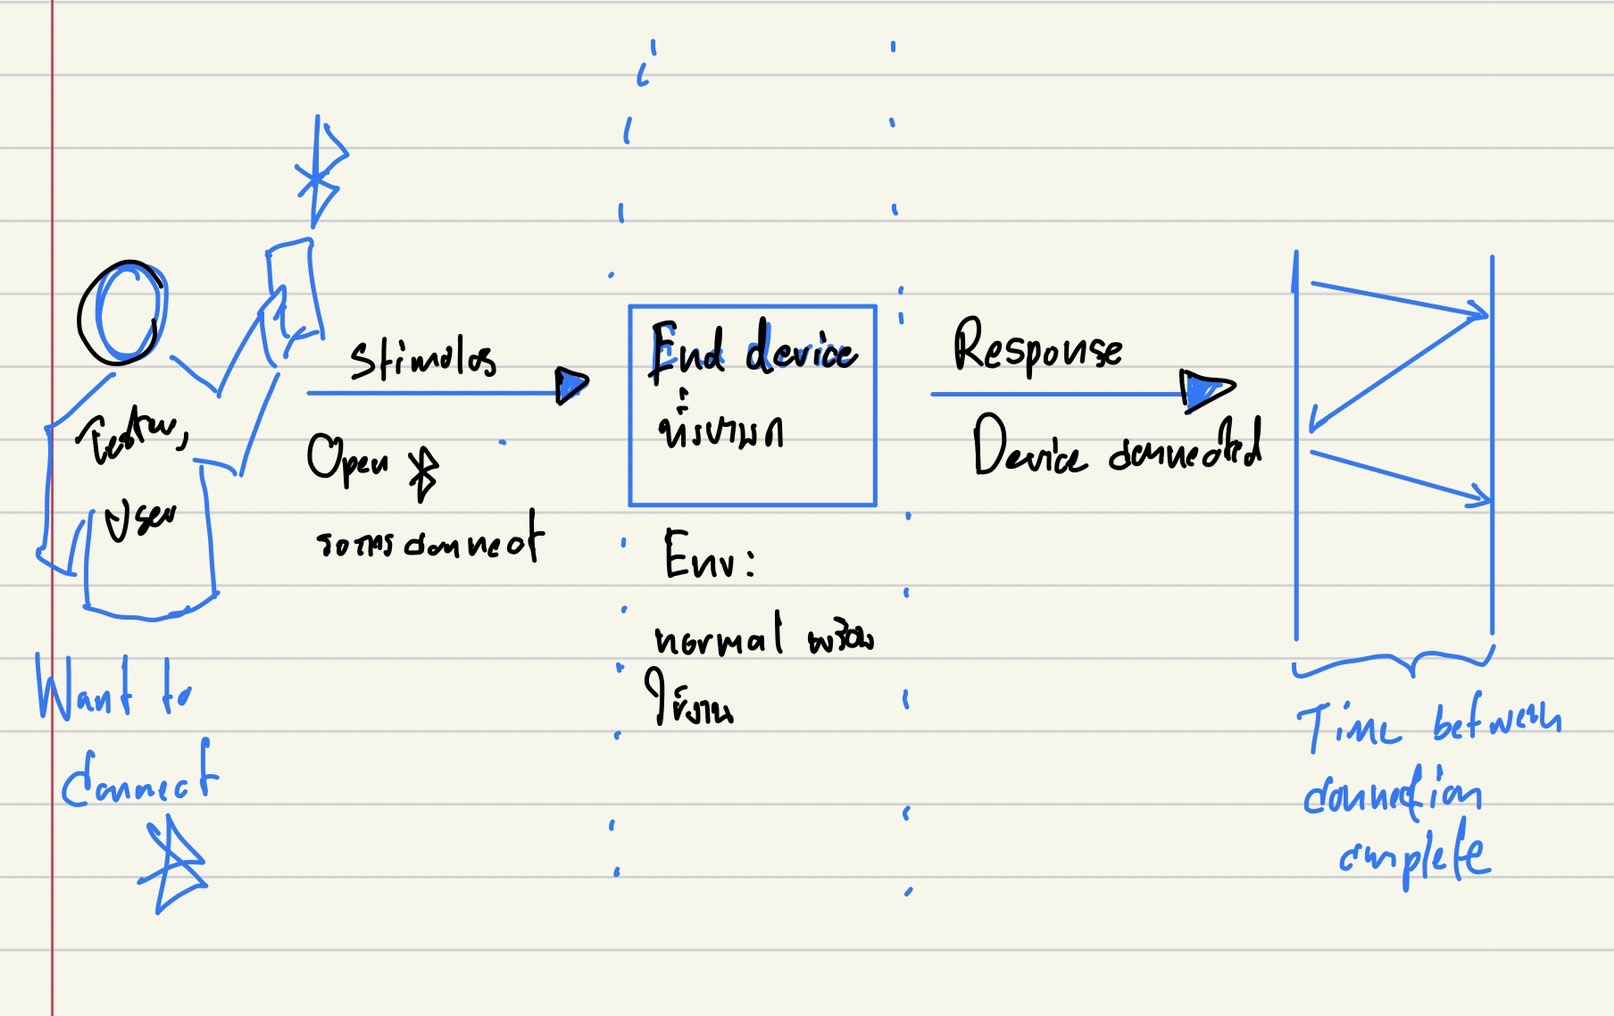 Tester,
User
Want to
connect
Stimolos
Open
รอการ connect
End device
ทั้งหมด
Env:
normal พร้อม
ใช้งาน
Response
Device connected
Time between
connection
complete